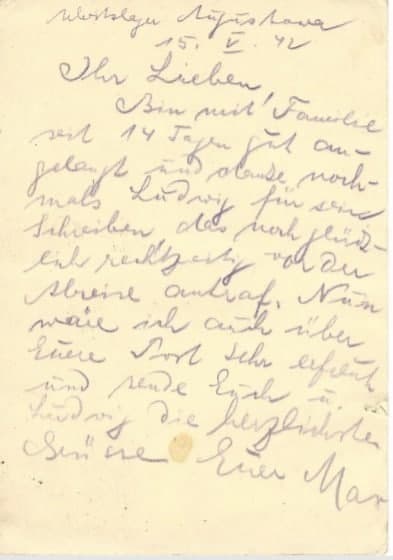 Arbeitslager Augustowa
15. V. 42
Ihr Lieben!
Bin mit Familie
seit 14 Tagen gut an-
gelangt und danke noch-
mals Ludwig für sein
Schreiben, das noch glück-
lich rechtzeitig vor der
Abreise antraf. Nun
wäre ich auch über
Euere Post sehr erfreut
und sende Euch u.
Ludwig die herzlichsten
Grüsse Euer Max